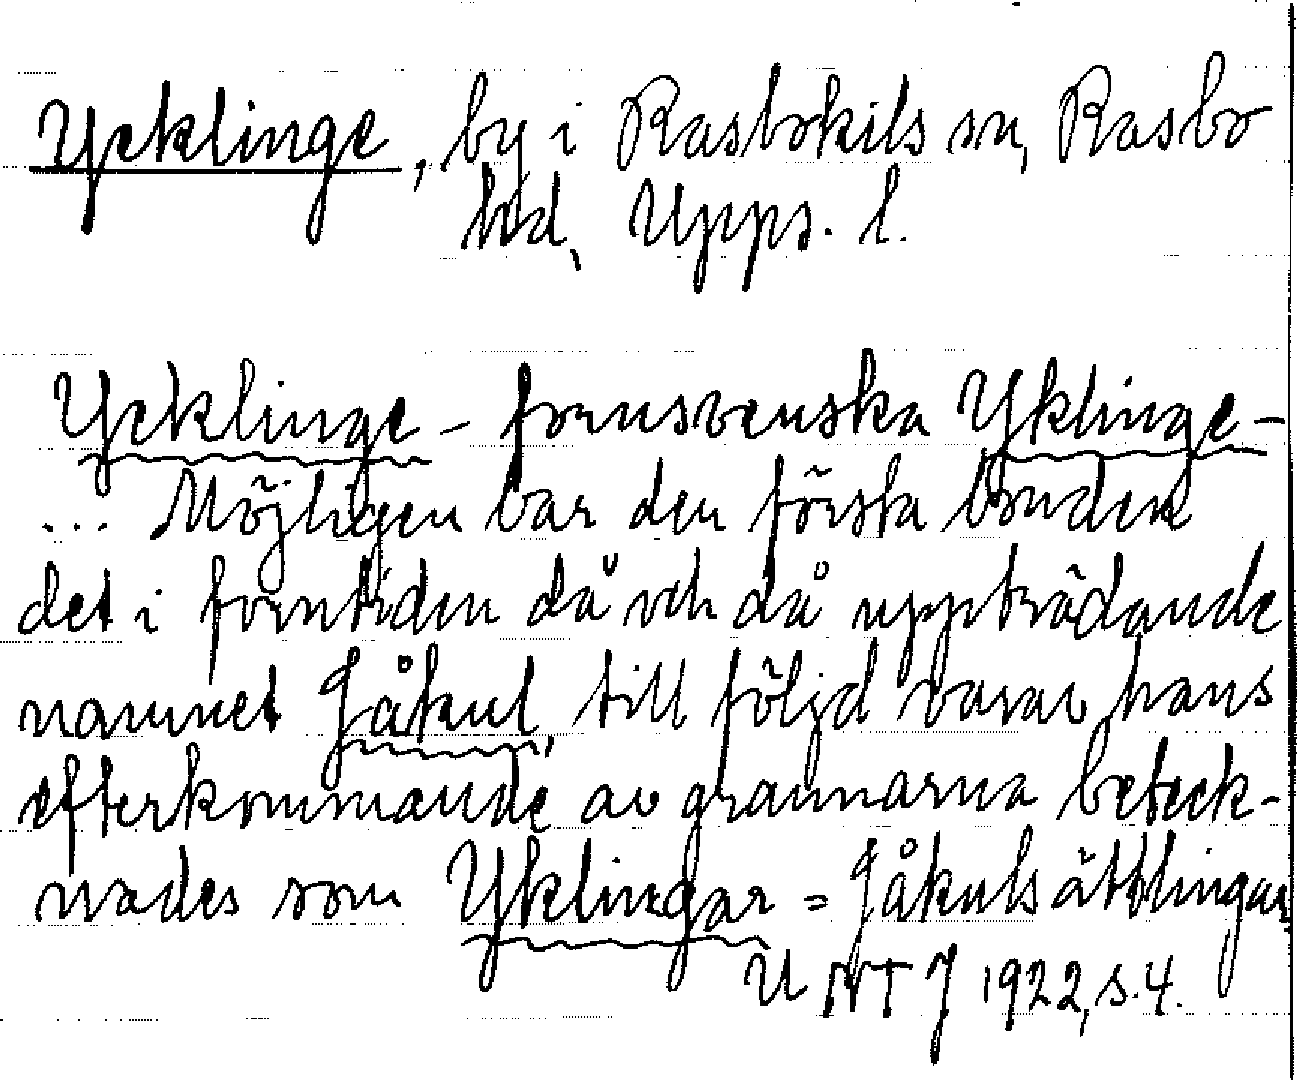 Ycklinge, by i Rasbokils sn, Rasbo
hd, Upps. l.
Ycklinge – fornsvenska Yklinge –
... Möjligen bar den första bonden
det i forntiden då och då uppträdande
namnet Jåkul, till följd varav hans
efterkommande av grannarna beteck-
nades som Yklingar = Jåkulsättlingar
UNTJ 1922, s. 4.